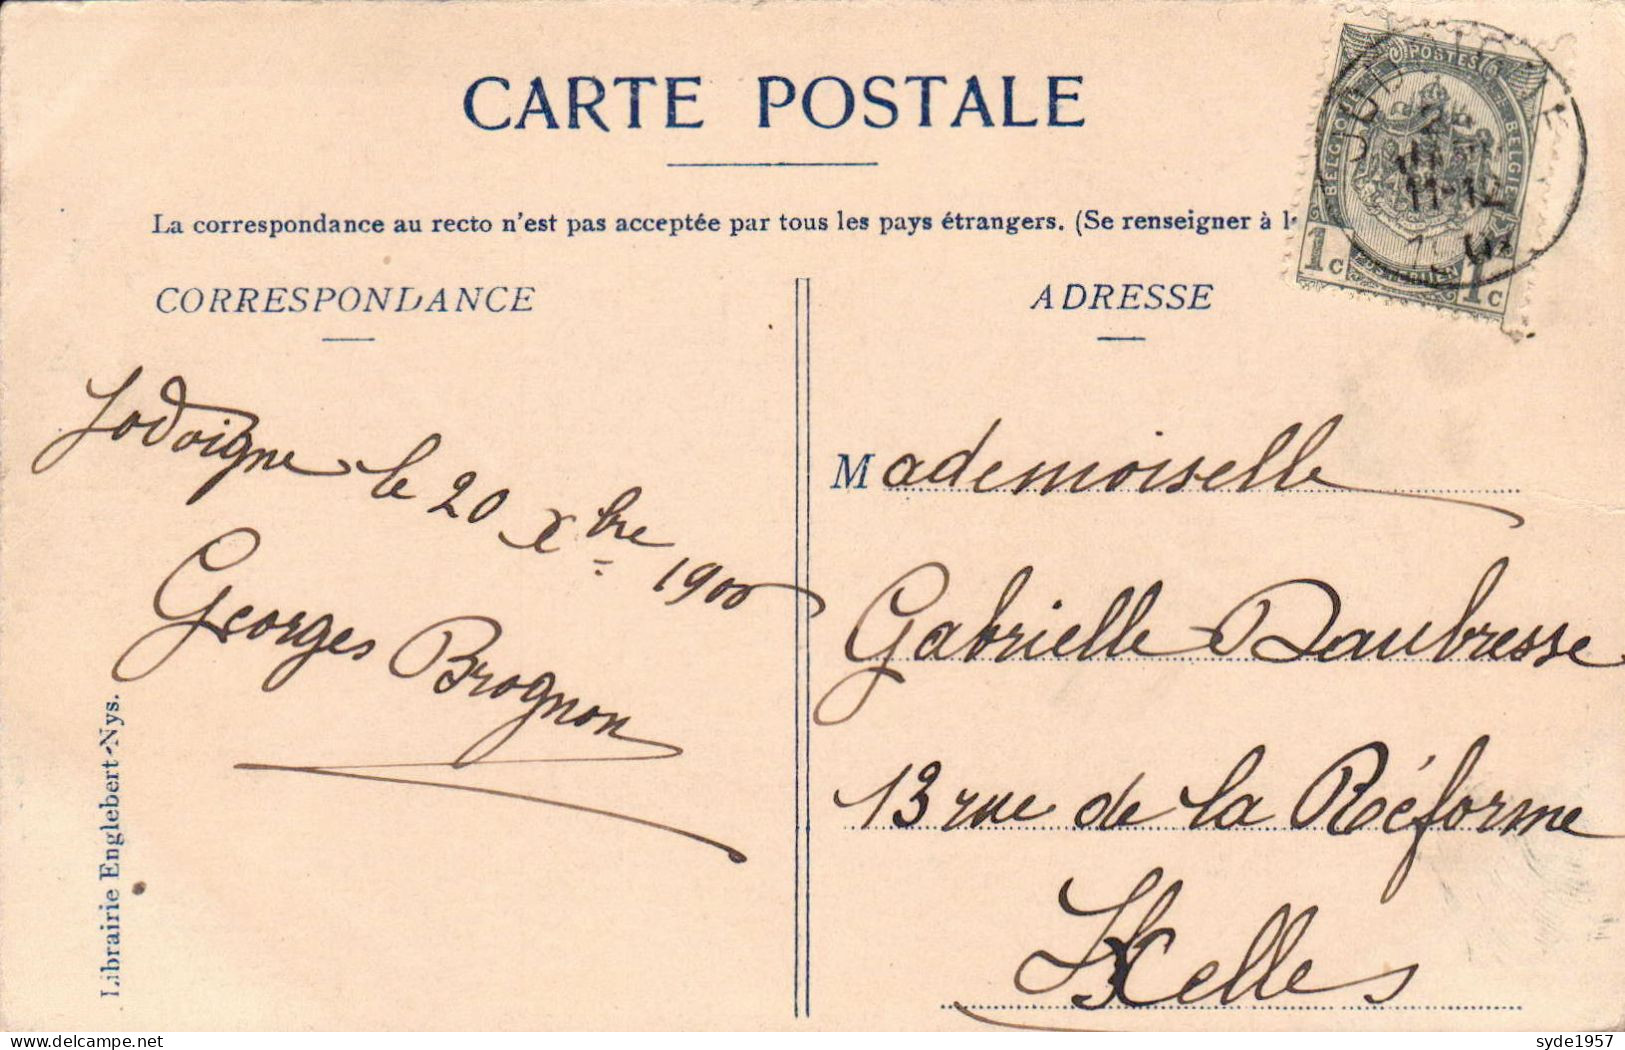 CARTE POSTALE
La correspondance au recto n'est pas acceptée par tous les pays étrangers. (Se renseigner à
CORRESPONDANCE
Jodoigne le 20 Xbre 1900
Georges Brognon
Librairie Englebert-Nys.
ADRESSE
Mademoiselle
Gabrielle Daubresse
13 rue de la Réforme
IXcelles
POSTES
BELGIQUE BELGIE
1c 1c
11-12
syde1957